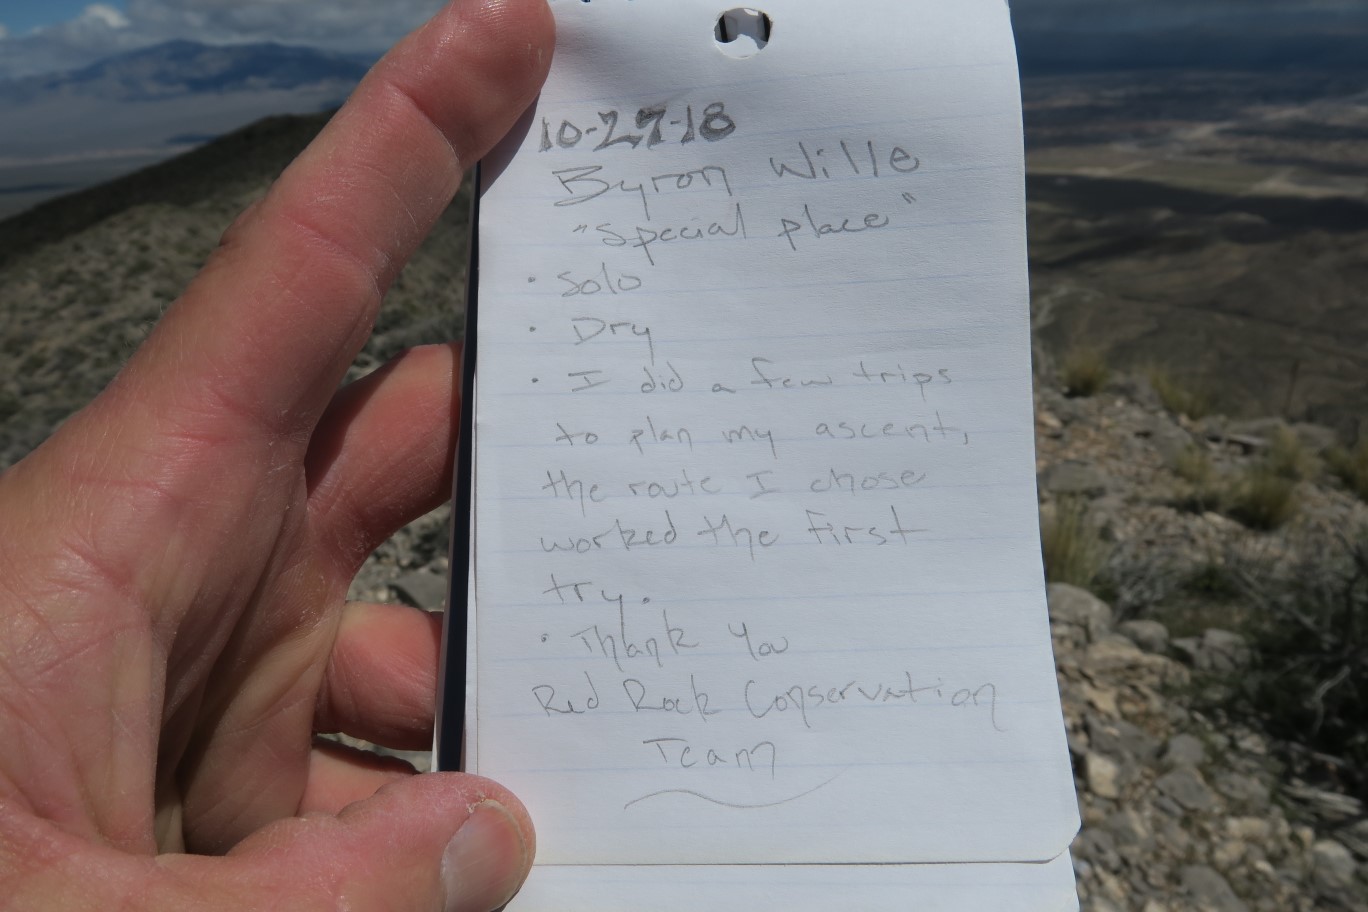 10-27-18
Byron Wille
"Special place"
• Solo
• Dry
• I did a few trips
to plan my ascent,
the route I chose
worked the first
try.
• Thank You
Red Rock Conservation
Team